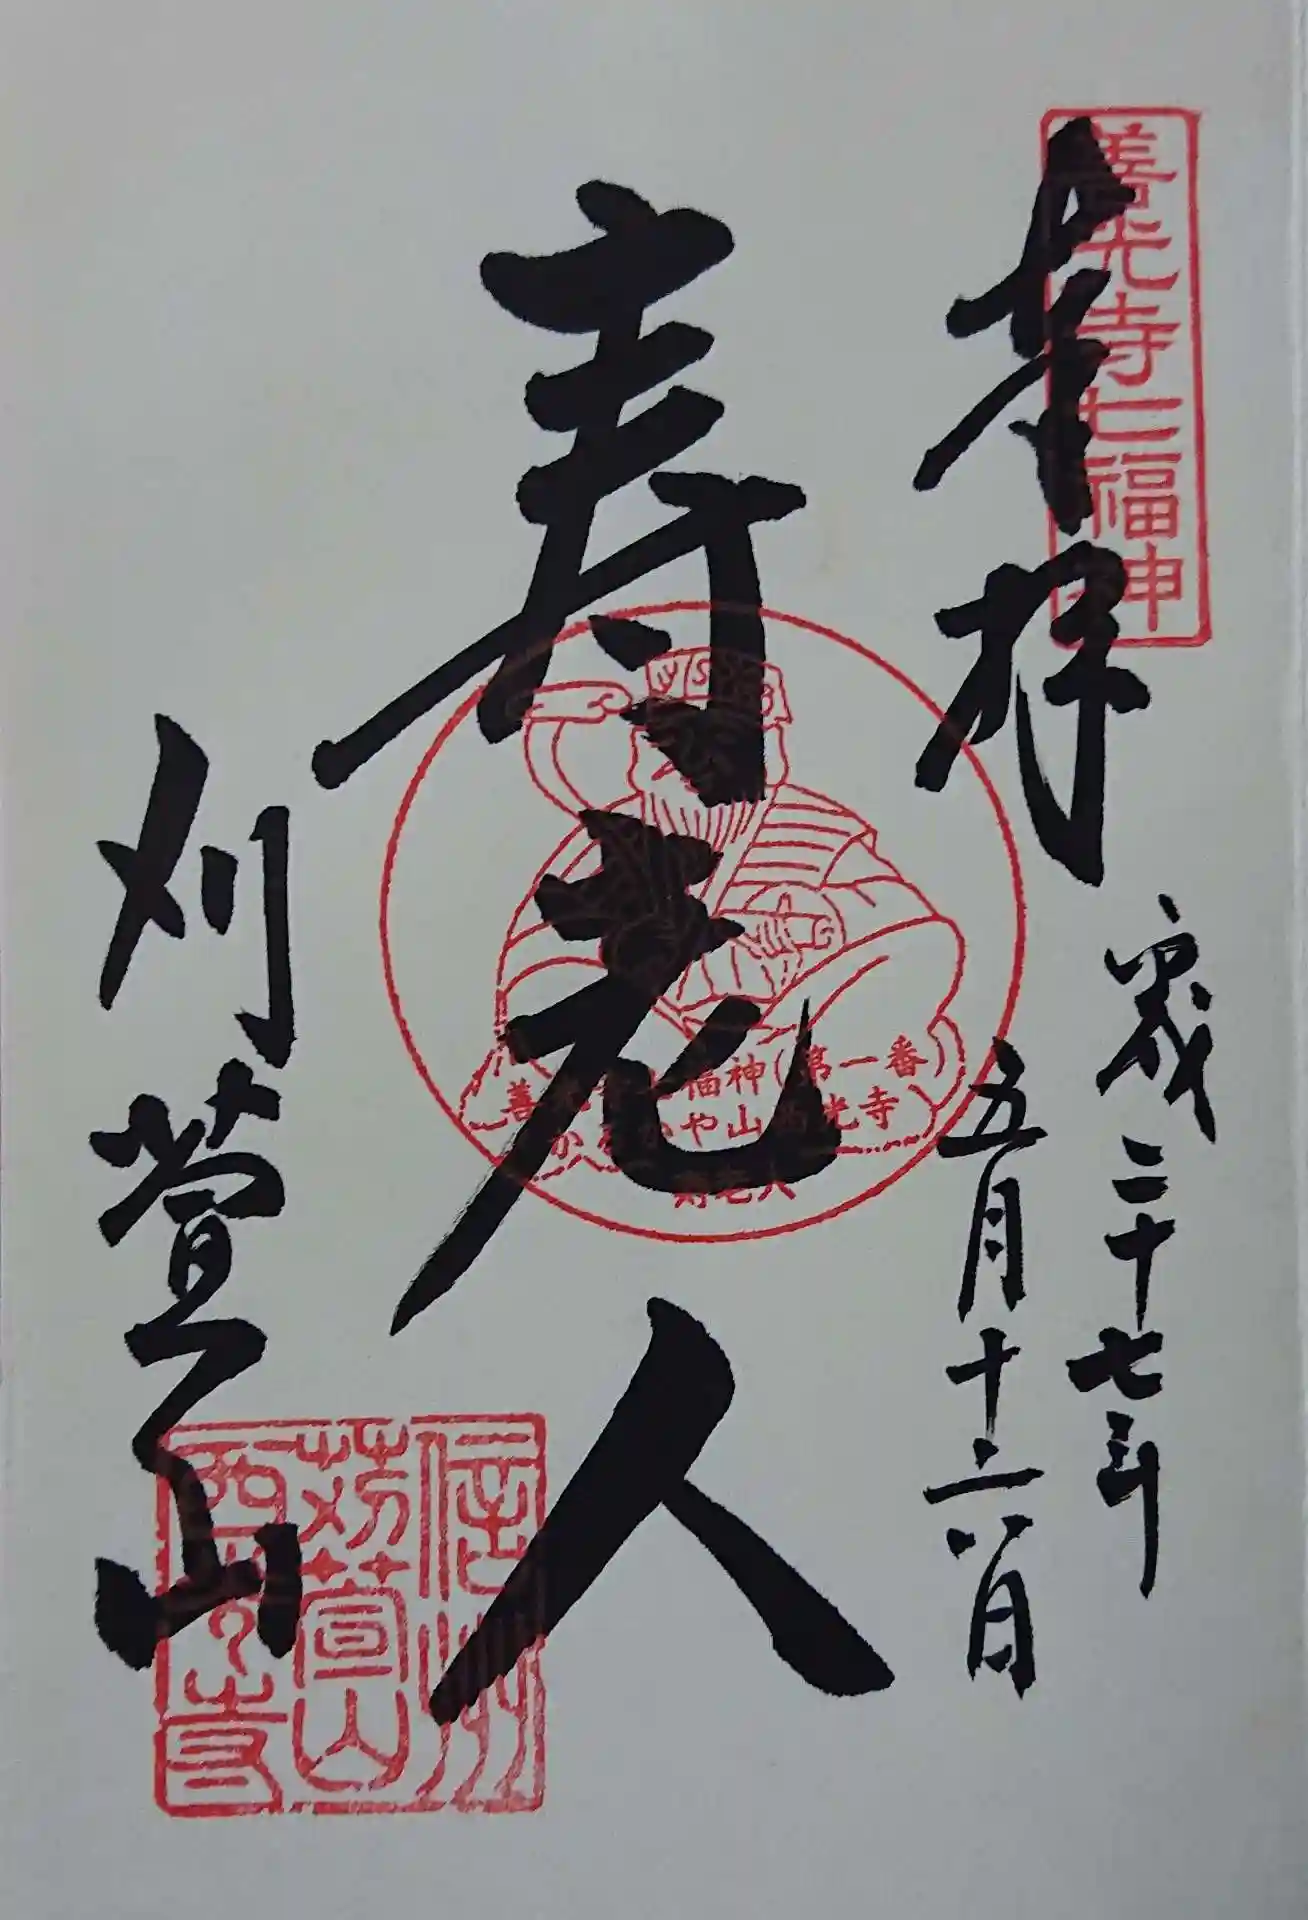 奉拝
善光寺七福神
平成二十七年
五月十二八日
寿老人
善光寺七福神(第一番)
かるかや山西光寺
寿老人
刈萱山
信州
苅萱山
西光寺